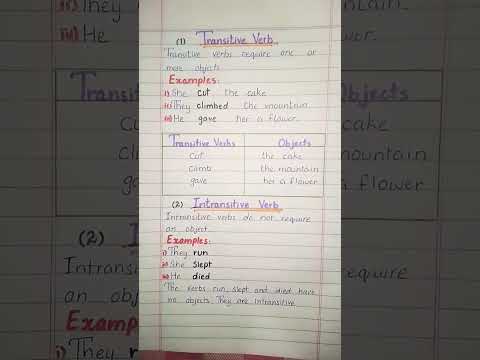 (1) Transitive Verb
Transitive verbs require one or
more objects
Examples:
i) She cut the cake
ii) They climbed the mountain.
iii) He gave her a flower.
Transitive Verbs Objects
cut the cake
climb the mountain
gave her a flower
(2) Intransitive Verb
Intransitive verbs do not require
an object.
Examples:
i) They run
ii) She slept
iii) He died
The verbs run, slept and died have
no objects. They are intransitive.